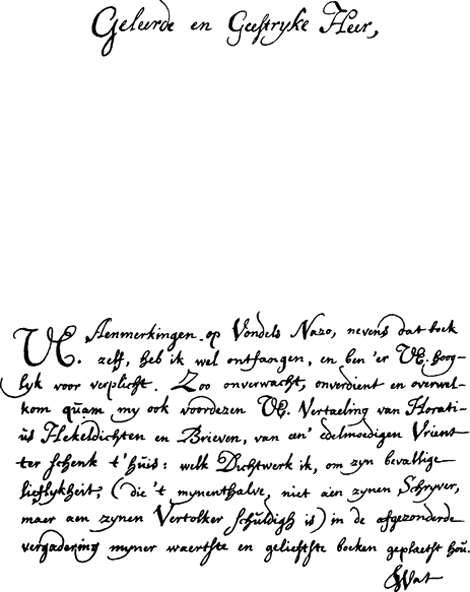 Geleerde en Geestryke Heer,
VE. Aenmerkingen op Vondels Nazo, nevens dat boek
zelf, heb ik wel ontfangen, en ben 'er VE. hoog-
lyk voor verplicht. Zoo onverwacht, onverdient en overwel-
kom quam my ook voordezen VE. Vertaeling van Horati-
us Hekeldichten en Brieven, van een' edelmoedigen Vrient
ter schenk t'huis: welk Dichtwerk ik, om zyn bevallige
lieflykheit, (die 't mynenthalve, niet aen zynen Schryver,
maer aen zynen Vertolker schuldigh is) in de afgezonderde
vergadering myner waerthste en geliefhste boeken geplaetst hou.
Wat